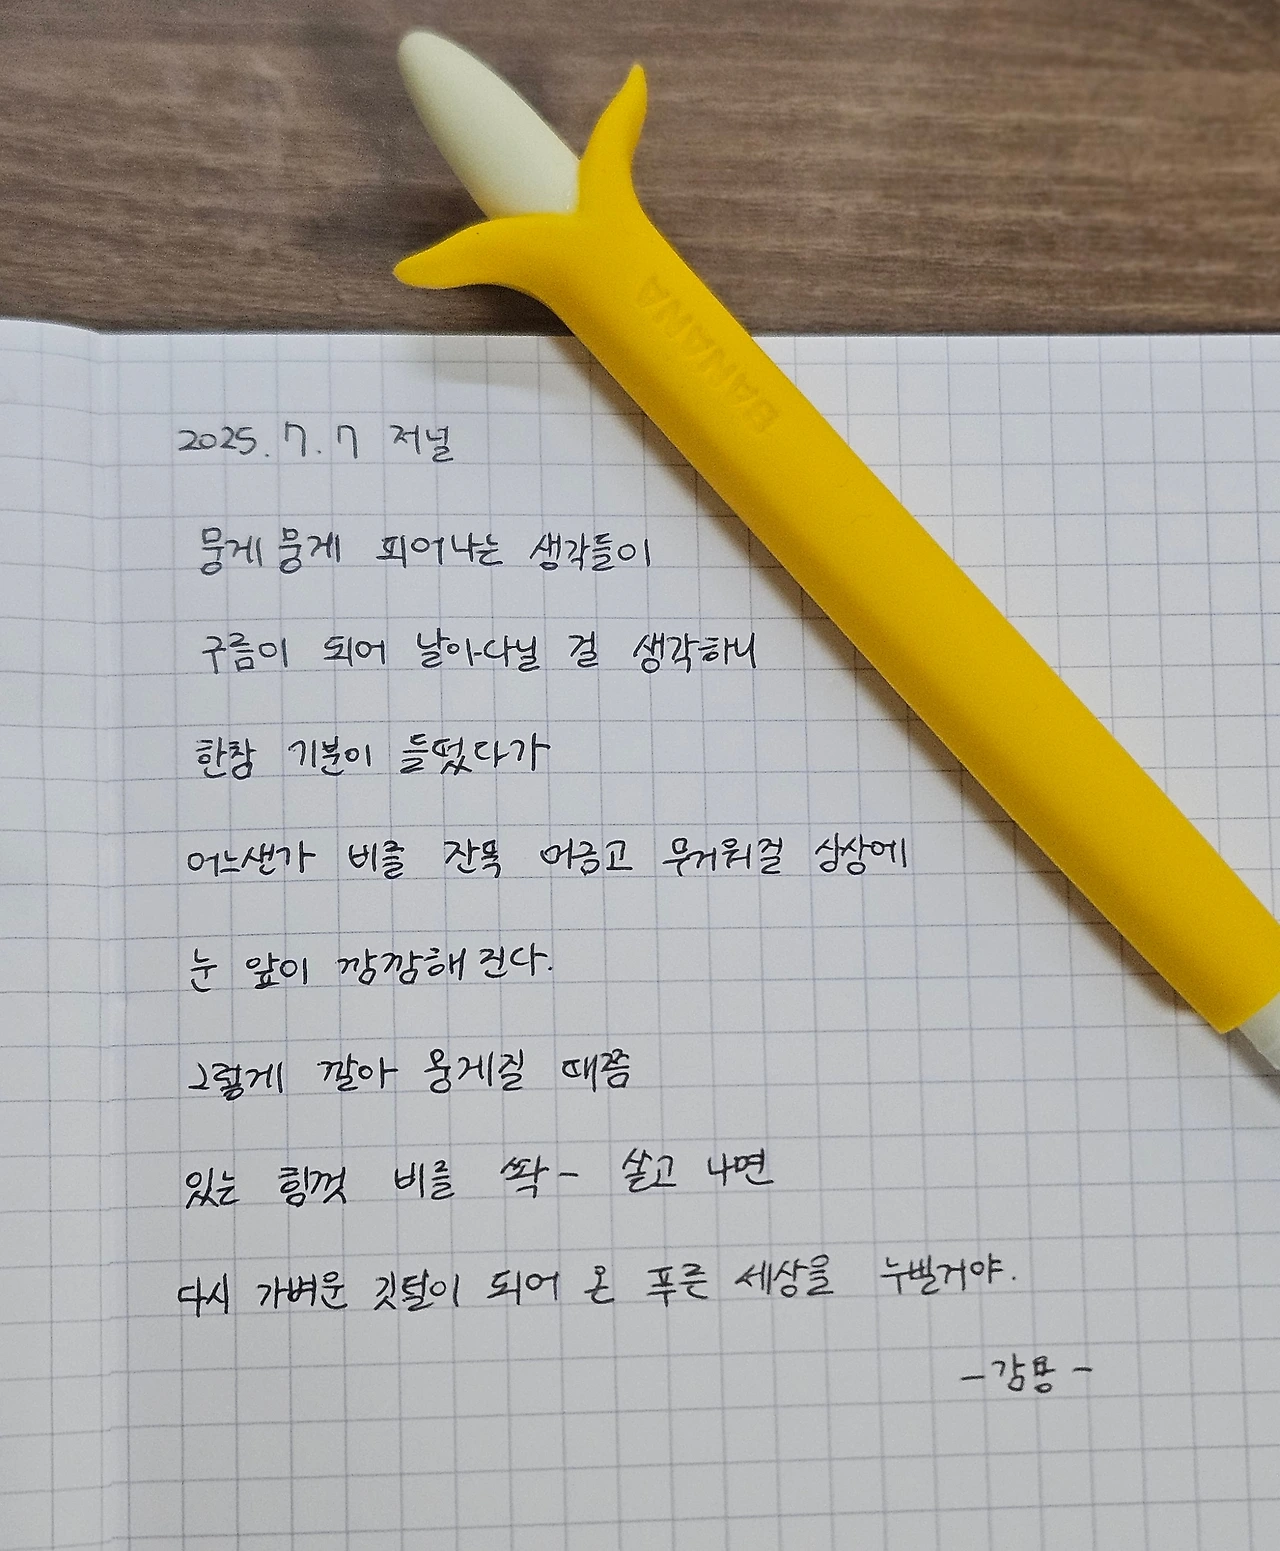 BANANA
2025. 7. 7 저널
뭉게뭉게 피어나는 생각들이
구름이 되어 날아다닐 걸 생각하니
한참 기분이 들떴다가
어느샌가 비를 잔뜩 머금고 무거워질 상상에
눈 앞이 깜깜해진다.
그렇게 깔아 뭉게질 때쯤
있는 힘껏 비를 쫙- 쏟고 나면
다시 가벼운 깃털이 되어 온 푸른 세상을 누빌거야.
-강뭉-